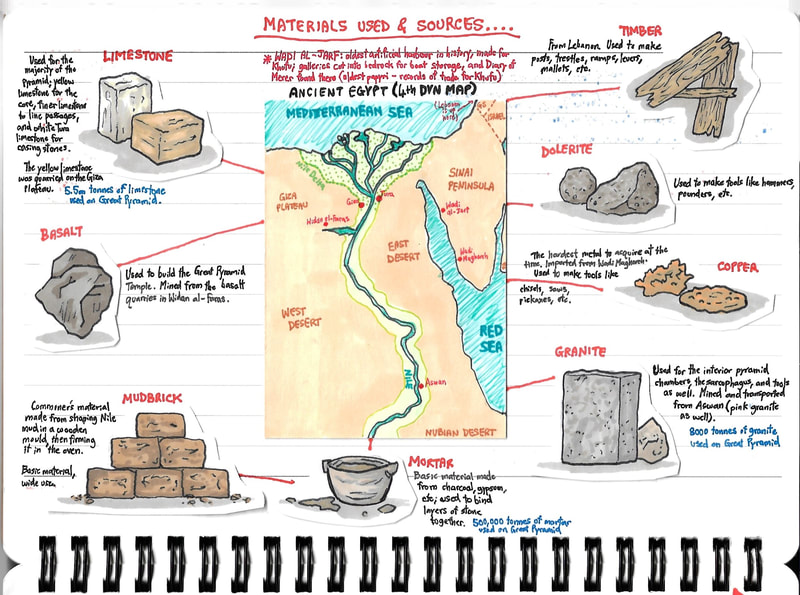 MATERIALS USED & SOURCES....
* WADI AL-JARF: oldest artificial harbour in history, made for
Khufu; galleries cut into bedrock for boat storage, and Diary of
Merer found there (oldest papyri - records of trade for Khufu)
ANCIENT EGYPT (4th DYN MAP)
LIMESTONE
Used for the
majority of the
Pyramid: yellow
limestone for the
core, finer limestone
to line passages,
and white Tura
limestone for
casing stones.
The yellow limestone
was quarried on the Giza
Plateau.
5.5m tonnes of limestone
used on Great Pyramid.
BASALT
Used to build the Great Pyramid
Temple. Mined from the basalt
quarries in Widan al-Faras.
MUDBRICK
Commoner's material
made from shaping Nile
mud in a wooden
mould, then firming
it in the oven.
Basic material,
wide use
MORTAR
Basic material made
from charcoal, gypsum,
etc; used to bind
layers of stone
together.
500,000 tonnes of mortar
used on Great Pyramid
TIMBER
From Lebanon. Used to make
posts, trestles, ramps, levers,
mallets, etc.
DOLERITE
Used to make tools like hammers,
pounders, etc.
COPPER
The hardest metal to acquire at the
time. Imported from Wadi Maghareh.
Used to make tools like
chisels, saws,
pickaxes, etc.
GRANITE
Used for the interior pyramid
chambers, the sarcophagus, and tools
as well. Mined and transported
from Aswan (pink granite
as well).
8000 tonnes of granite
used on Great Pyramid
MEDITERRANEAN SEA
(Lebanon
is up
here)
GS
ISRAEL
Nile Delta
SINAI
PENINSULA
GIZA
PLATEAU
Giza
Tura
Widan al-Faras
Wadi
al-Jarf
EAST
DESERT
Wadi
Maghareh
WEST
DESERT
RED
SEA
NILE
Aswan
NUBIAN DESERT